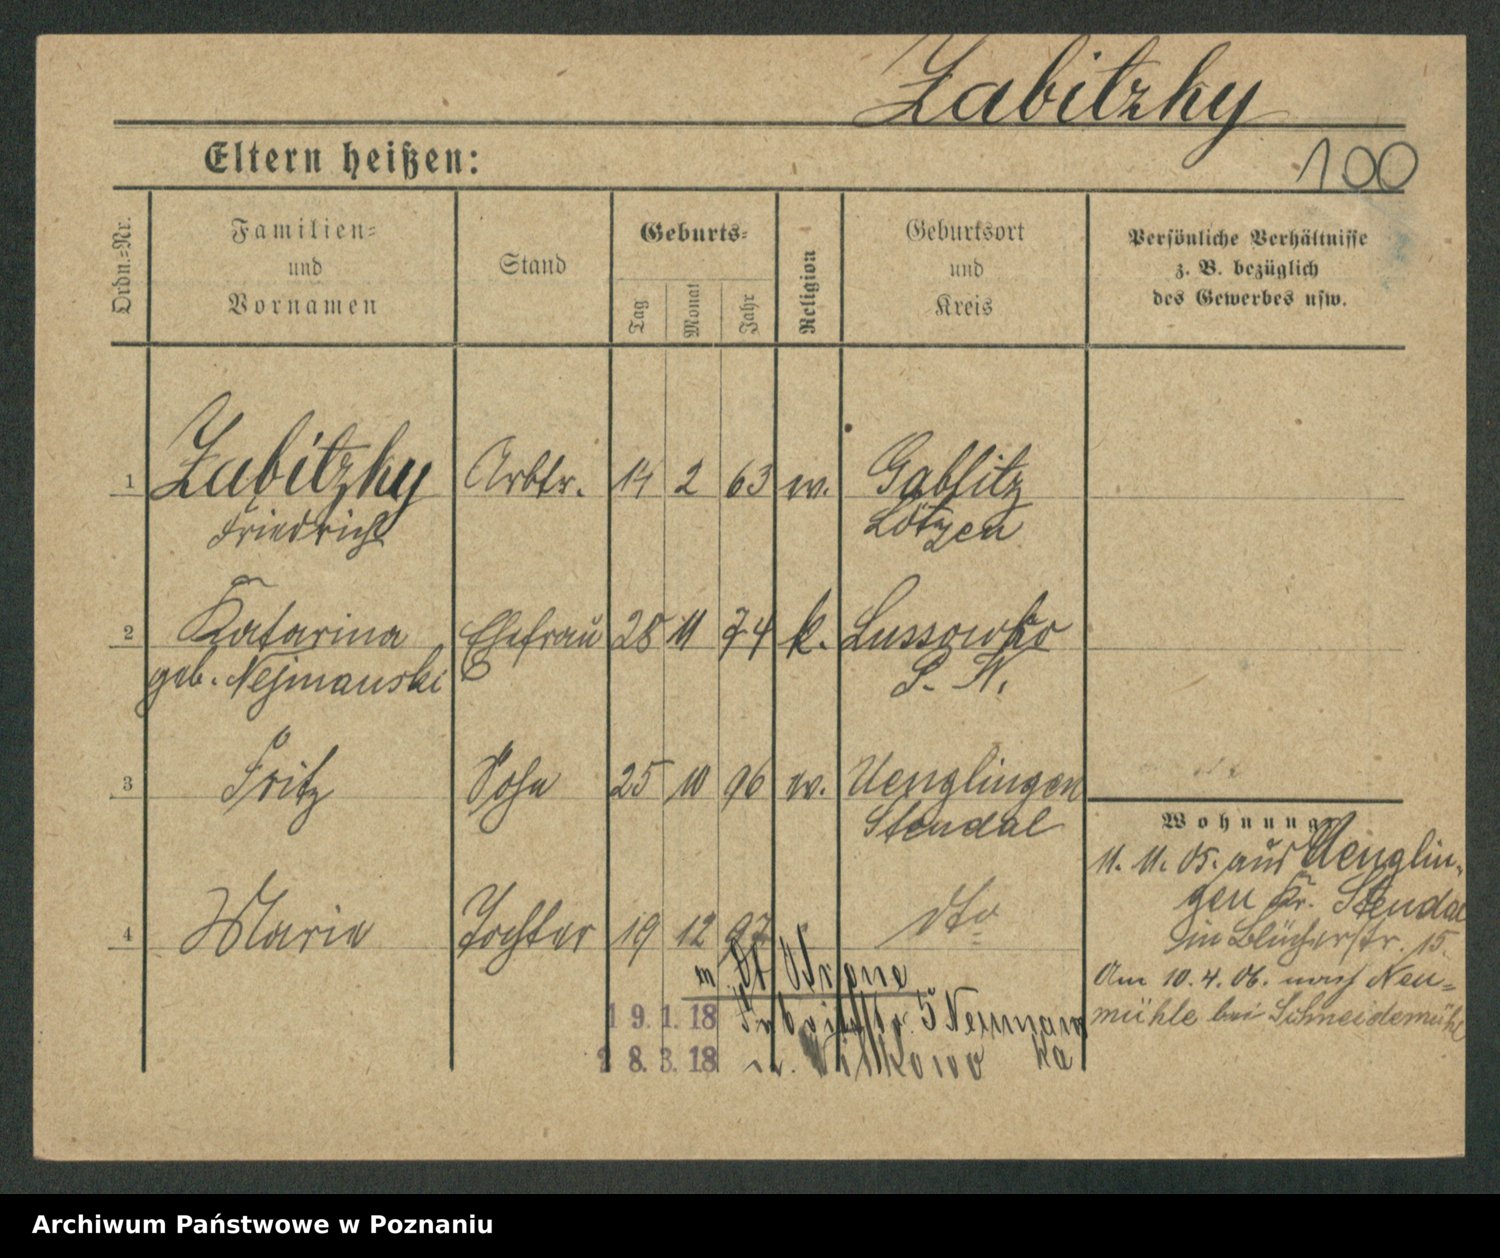 Zabitzky
Eltern heißen:
100
Ordn.-Nr.
Familien-
und
Vornamen
Stand
Geburts-
Tag
Monat
Jahr
Religion
Geburtsort
und
Kreis
Persönliche Verhältnisse
z. B. bezüglich
des Gewerbes usw.
1 Zabitzky Arbtr. 14 2 63 ev. Gablitz
Friedrich Lötzen
2 Katarina Ehefrau 28 11 74 k. Lussowko
geb. Nejmanski P. W.
3 Fritz Sohn 25 10 96 ev. Uenglingen
Stendal
Wohnung:
11. 11. 05. aus Uenglin-
gen Kr. Stendal
in Blücherstr. 15.
4 Marie Tochter 19 12 97 dto
Am 10. 4. 06. nach Neu-
mühle bei Schneidemühl
n. Dt Krone
19. 1. 18 5 Neumann
28. 3. 18 n. Wilkowo
Archiwum Państwowe w Poznaniu